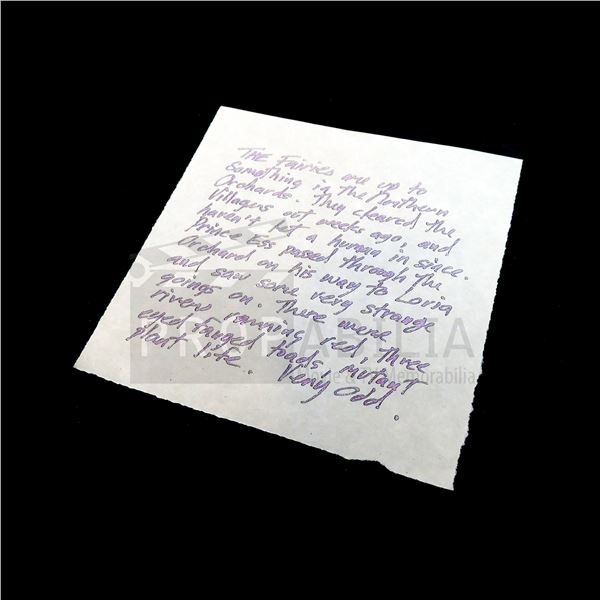 THE Fairies are up to
Something in the Northern
Orchards. They cleared the
Villagers out weeks ago, and
haven't let a human in since.
Prince Ess passed through the
Orchard on his way to Loria
and saw some very strange
goings on. There were
rivers running red, three
eyed fanged toads, mutant
plant life. Very Odd.
PROPABILIA
Memorabilia